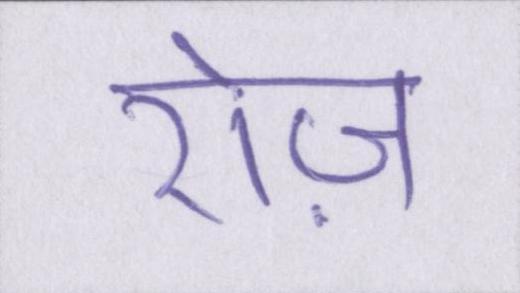 रोज़